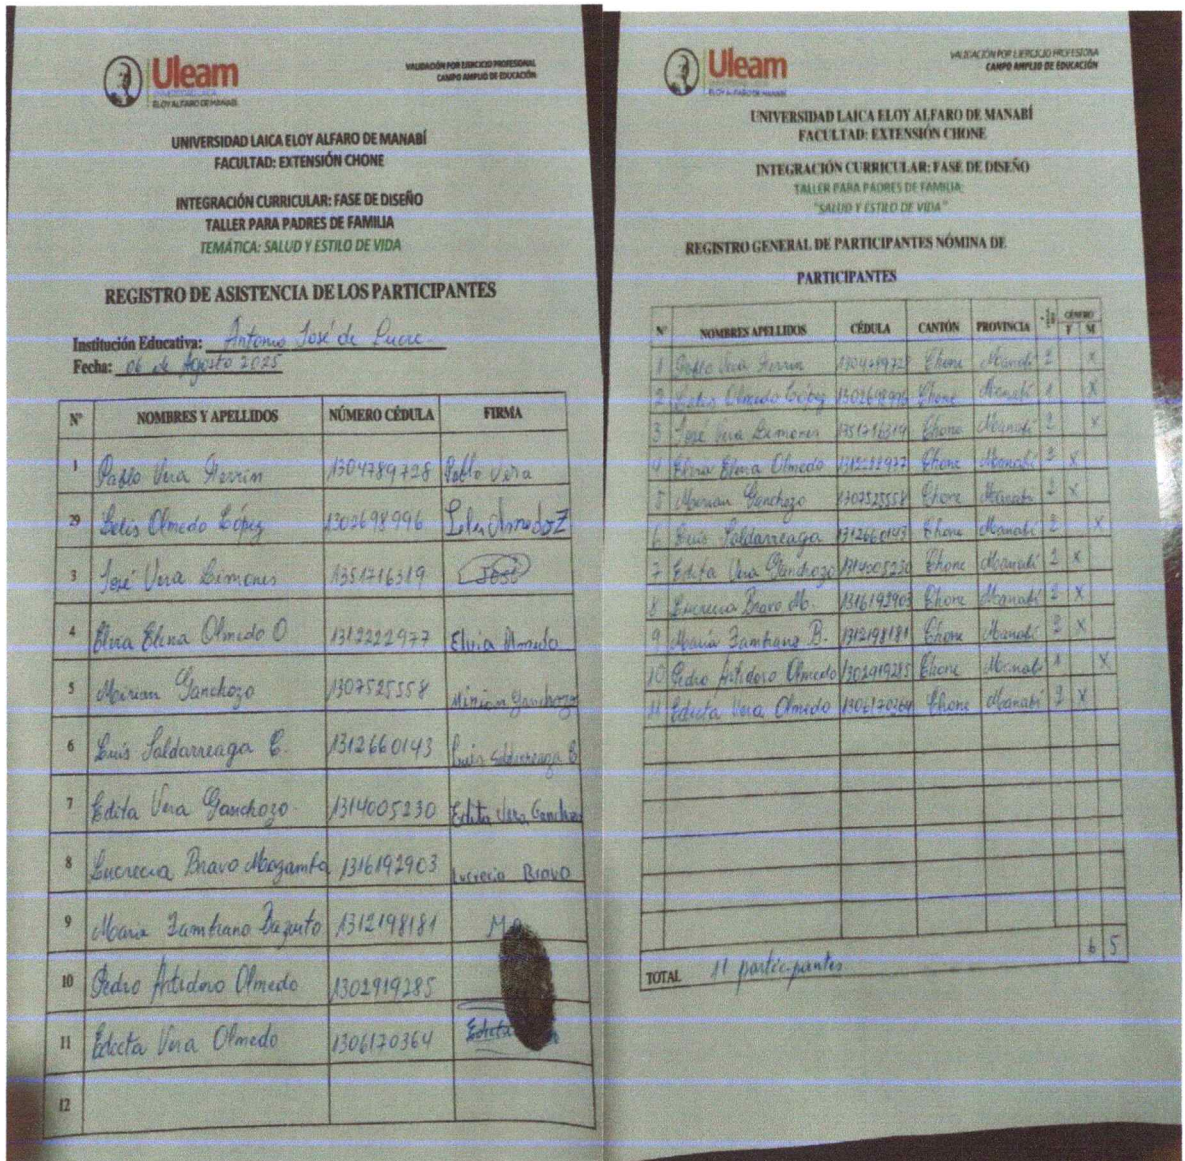 Uleam
UNIVERSIDAD LAICA
ELOY ALFARO DE MANABÍ
VALIDACIÓN POR EJERCICIO PROFESIONAL
CAMPO AMPLIO DE EDUCACIÓN
UNIVERSIDAD LAICA ELOY ALFARO DE MANABÍ
FACULTAD: EXTENSIÓN CHONE
INTEGRACIÓN CURRICULAR: FASE DE DISEÑO
TALLER PARA PADRES DE FAMILIA
TEMÁTICA: SALUD Y ESTILO DE VIDA
REGISTRO DE ASISTENCIA DE LOS PARTICIPANTES
Institución Educativa: Antonio José de Sucre
Fecha: 06 de Agosto 2025
N° NOMBRES Y APELLIDOS NÚMERO CÉDULA FIRMA
1 Pablo Vera Ferrin 1304789728 Pablo Vera
29 Olmedo López 1302698996
3 José Vera Limones 1351716319 José
4 Elvia Elena Olmedo O 1312222977 Elvia Olmedo
5 Mirian Ganchozo 1307525558 Mirian Ganchozo
6 Luis Saldarreaga C. 1312660143 Luis Saldarreaga C
7 Edita Vera Ganchozo. 1314005230 Edita Vera Ganchozo
8 Lucrecia Bravo 1316192903 Lucrecia Bravo
9 María Zambrano 1312198181
10 Pedro Artidoro Olmedo 1302919285
11 Edecta Vera Olmedo 1306170364
12
Uleam
UNIVERSIDAD LAICA
ELOY ALFARO DE MANABÍ
VALIDACIÓN POR EJERCICIO PROFESIONA
CAMPO AMPLIO DE EDUCACIÓN
UNIVERSIDAD LAICA ELOY ALFARO DE MANABÍ
FACULTAD: EXTENSIÓN CHONE
INTEGRACIÓN CURRICULAR: FASE DE DISEÑO
TALLER PARA PADRES DE FAMILIA:
"SALUD Y ESTILO DE VIDA"
REGISTRO GENERAL DE PARTICIPANTES NÓMINA DE
PARTICIPANTES
N° NOMBRES APELLIDOS CÉDULA CANTÓN PROVINCIA GÉNERO
F M
1 Pablo Vera Ferrin 1304789728 Chone Manabí 2 X
2 Olmedo López 1302698996 Chone Manabí 1 X
3 José Vera Limones 1351716319 Chone Manabí 2 X
4 Elvia Elena Olmedo 1312222977 Chone Manabí X
5 Mirian Ganchozo 1307525558 Chone Manabí 2 X
6 Luis Saldarreaga 1312660143 Chone Manabí 2 X
7 Edita Vera Ganchozo 1314005230 Chone Manabí 2 X
8 Lucrecia Bravo M. 1316192903 Chone Manabí 2 X
9 María Zambrano B. 1312198181 Chone Manabí 2 X
10 Pedro Artidoro Olmedo 1302919285 Chone Manabí 1 X
11 Edecta Vera Olmedo 1306170364 Chone Manabí 2 X
TOTAL 11 participantes 6 5